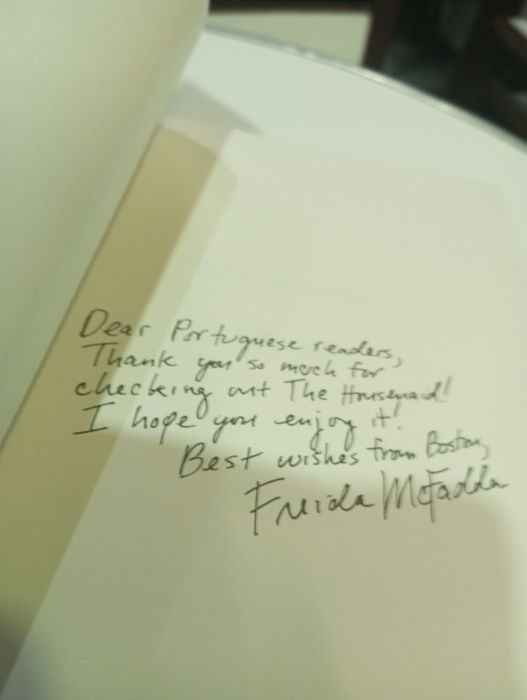 Dear Portuguese readers,
Thank you so much for
checking out The Housemaid!
I hope you enjoy it!
Best wishes from Boston,
Freida McFadden